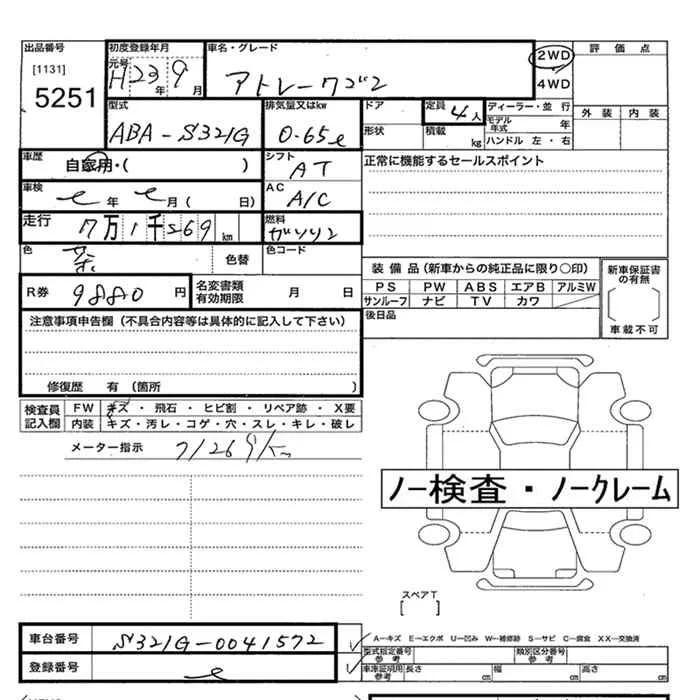 出品番号 初度登録年月 車名・グレード 2WD 評価点
[1131] 元号 H23年9月 アトレーワゴン 4WD
5251 型式 排気量又はkw ドア 定員 4人 ディーラー・並行 外装 内装
ABA-S321G 0.65ℓ 形状 積載 kg モデル年式 年
ハンドル 左・右
車歴 自家用・( ) シフト AT 正常に機能するセールスポイント
車検 年 月( 日) AC A/C
走行 7万1千269km 燃料 ガソリン
色 茶 色替 色コード
R券 9880円 名変書類有効期限 月 日 装備品(新車からの純正品に限り○印) 新車保証書の有無
PS PW ABS エアB アルミW
サンルーフ ナビ TV カワ
車載不可
注意事項申告欄(不具合内容等は具体的に記入して下さい) 後日品
修復歴 有(箇所 )
検査員記入欄 FW キズ・飛石・ヒビ割・リペア跡・X要
内装 キズ・汚レ・コゲ・穴・スレ・キレ・破レ
メーター指示 71269km
ノー検査・ノークレーム
スペアT
[ ]
車台番号 S321G-0041572 A-キズ E-エクボ U-凹み W-補修跡 S-サビ C-腐食 XX-交換済
型式指定番号 参考 類別区分番号 参考
登録番号 車庫証明用 参考 長さ cm 幅 cm 高さ cm